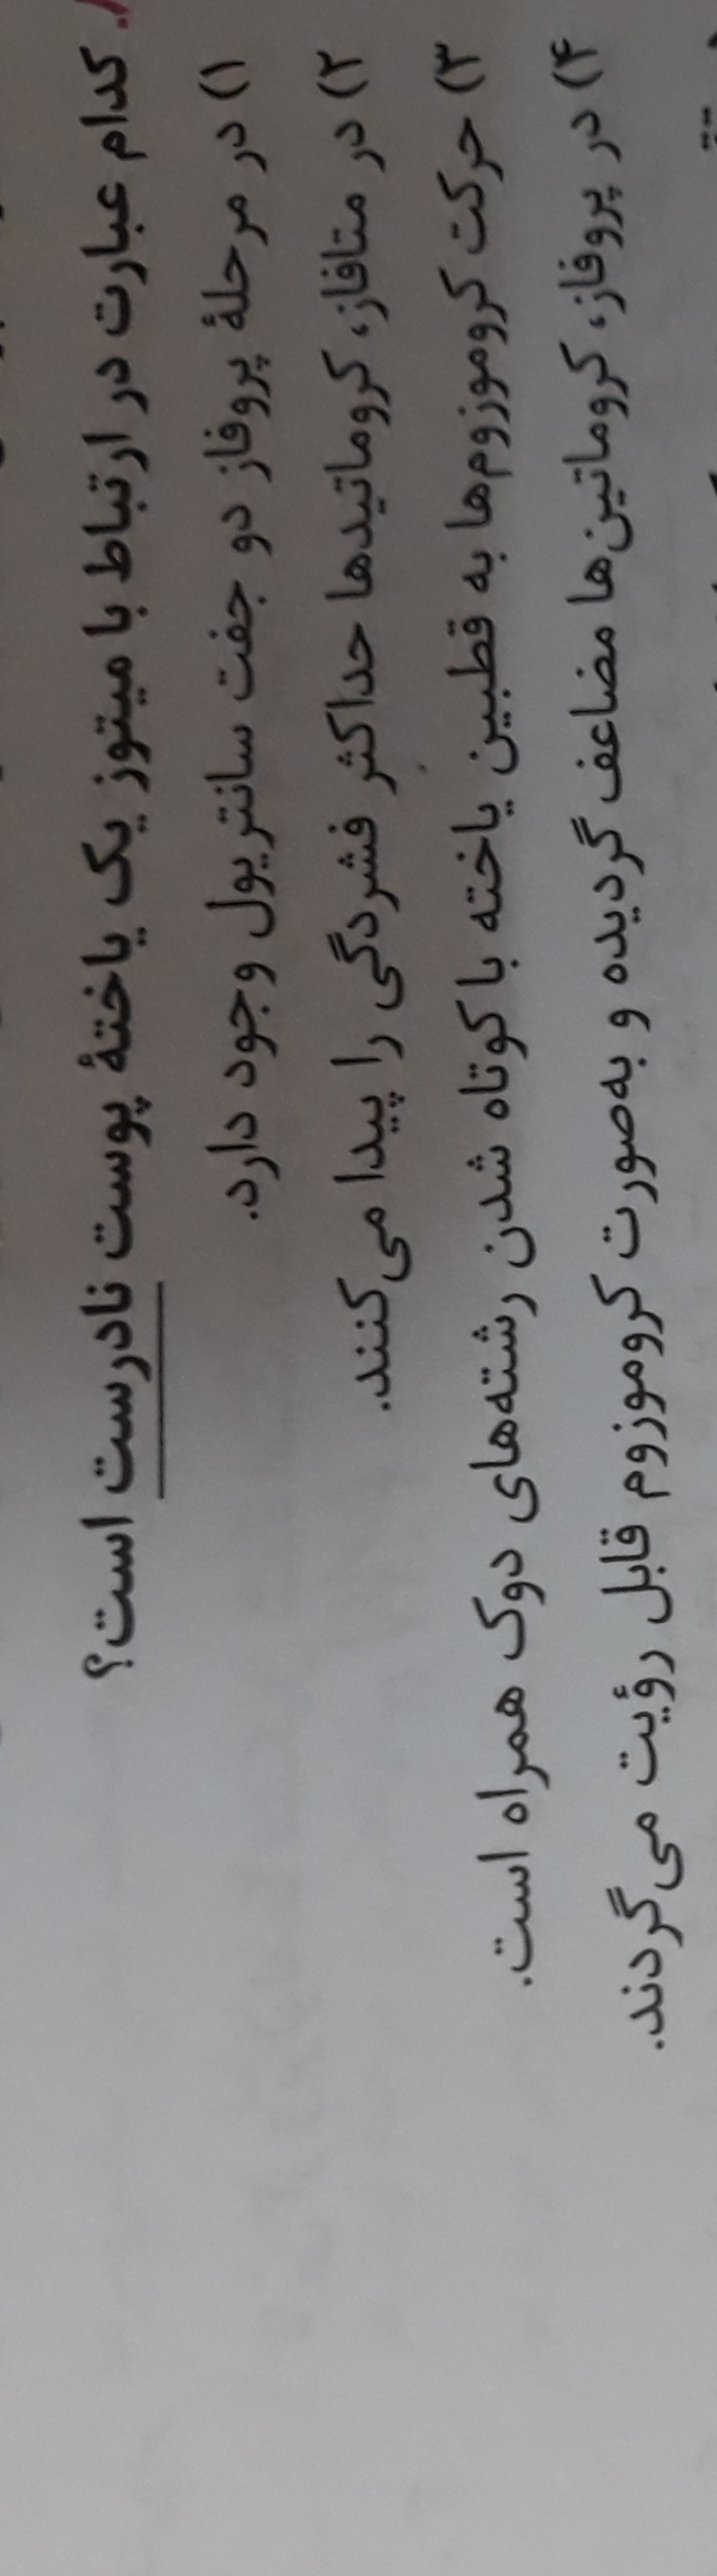 کدام عبارت در ارتباط با میتوز یک یاختهٔ پوست نادرست است؟
۱) در مرحلهٔ پروفاز دو جفت سانتریول وجود دارد.
۲) در متافاز، کروماتیدها حداکثر فشردگی را پیدا می‌کنند.
۳) حرکت کروموزوم‌ها به قطبین یاخته با کوتاه شدن رشته‌های دوک همراه است.
۴) در پروفاز، کروماتین‌ها مضاعف گردیده و به‌صورت کروموزوم قابل رؤیت می‌گردند.